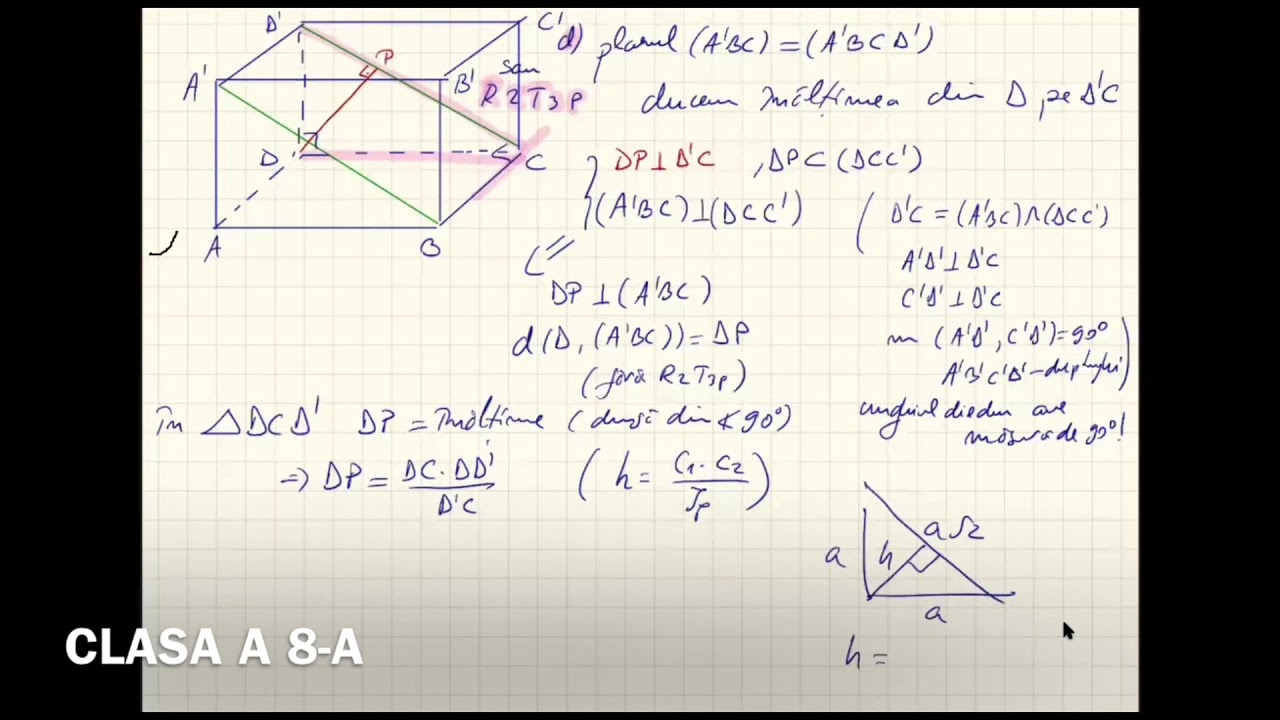 D'
C'
A'
P
B'
D
C
A
B
sau
R2T3P
d) planul (A'BC) = (A'BCD')
ducem înălțimea din D, pe D'C
DP ⊥ D'C , DP ⊂ (DCC')
(A'BC) ⊥ (DCC')
DP ⊥ (A'BC)
d(D, (A'BC)) = DP
(fără R2T3p)
D'C = (A'BC) ∩ (DCC')
A'D' ⊥ D'C
C'D' ⊥ D'C
m (A'D', C'D') = 90°
A'B'C'D' - dreptunghi
unghiul diedru are
măsura de 90°!
în △DCD' DP = înălțime (dusă din ∢ 90°)
⇒ DP = DC · DD' / D'C
(h = C1 · C2 / Ip)
a
h
a√2
a
h =
CLASA A 8-A